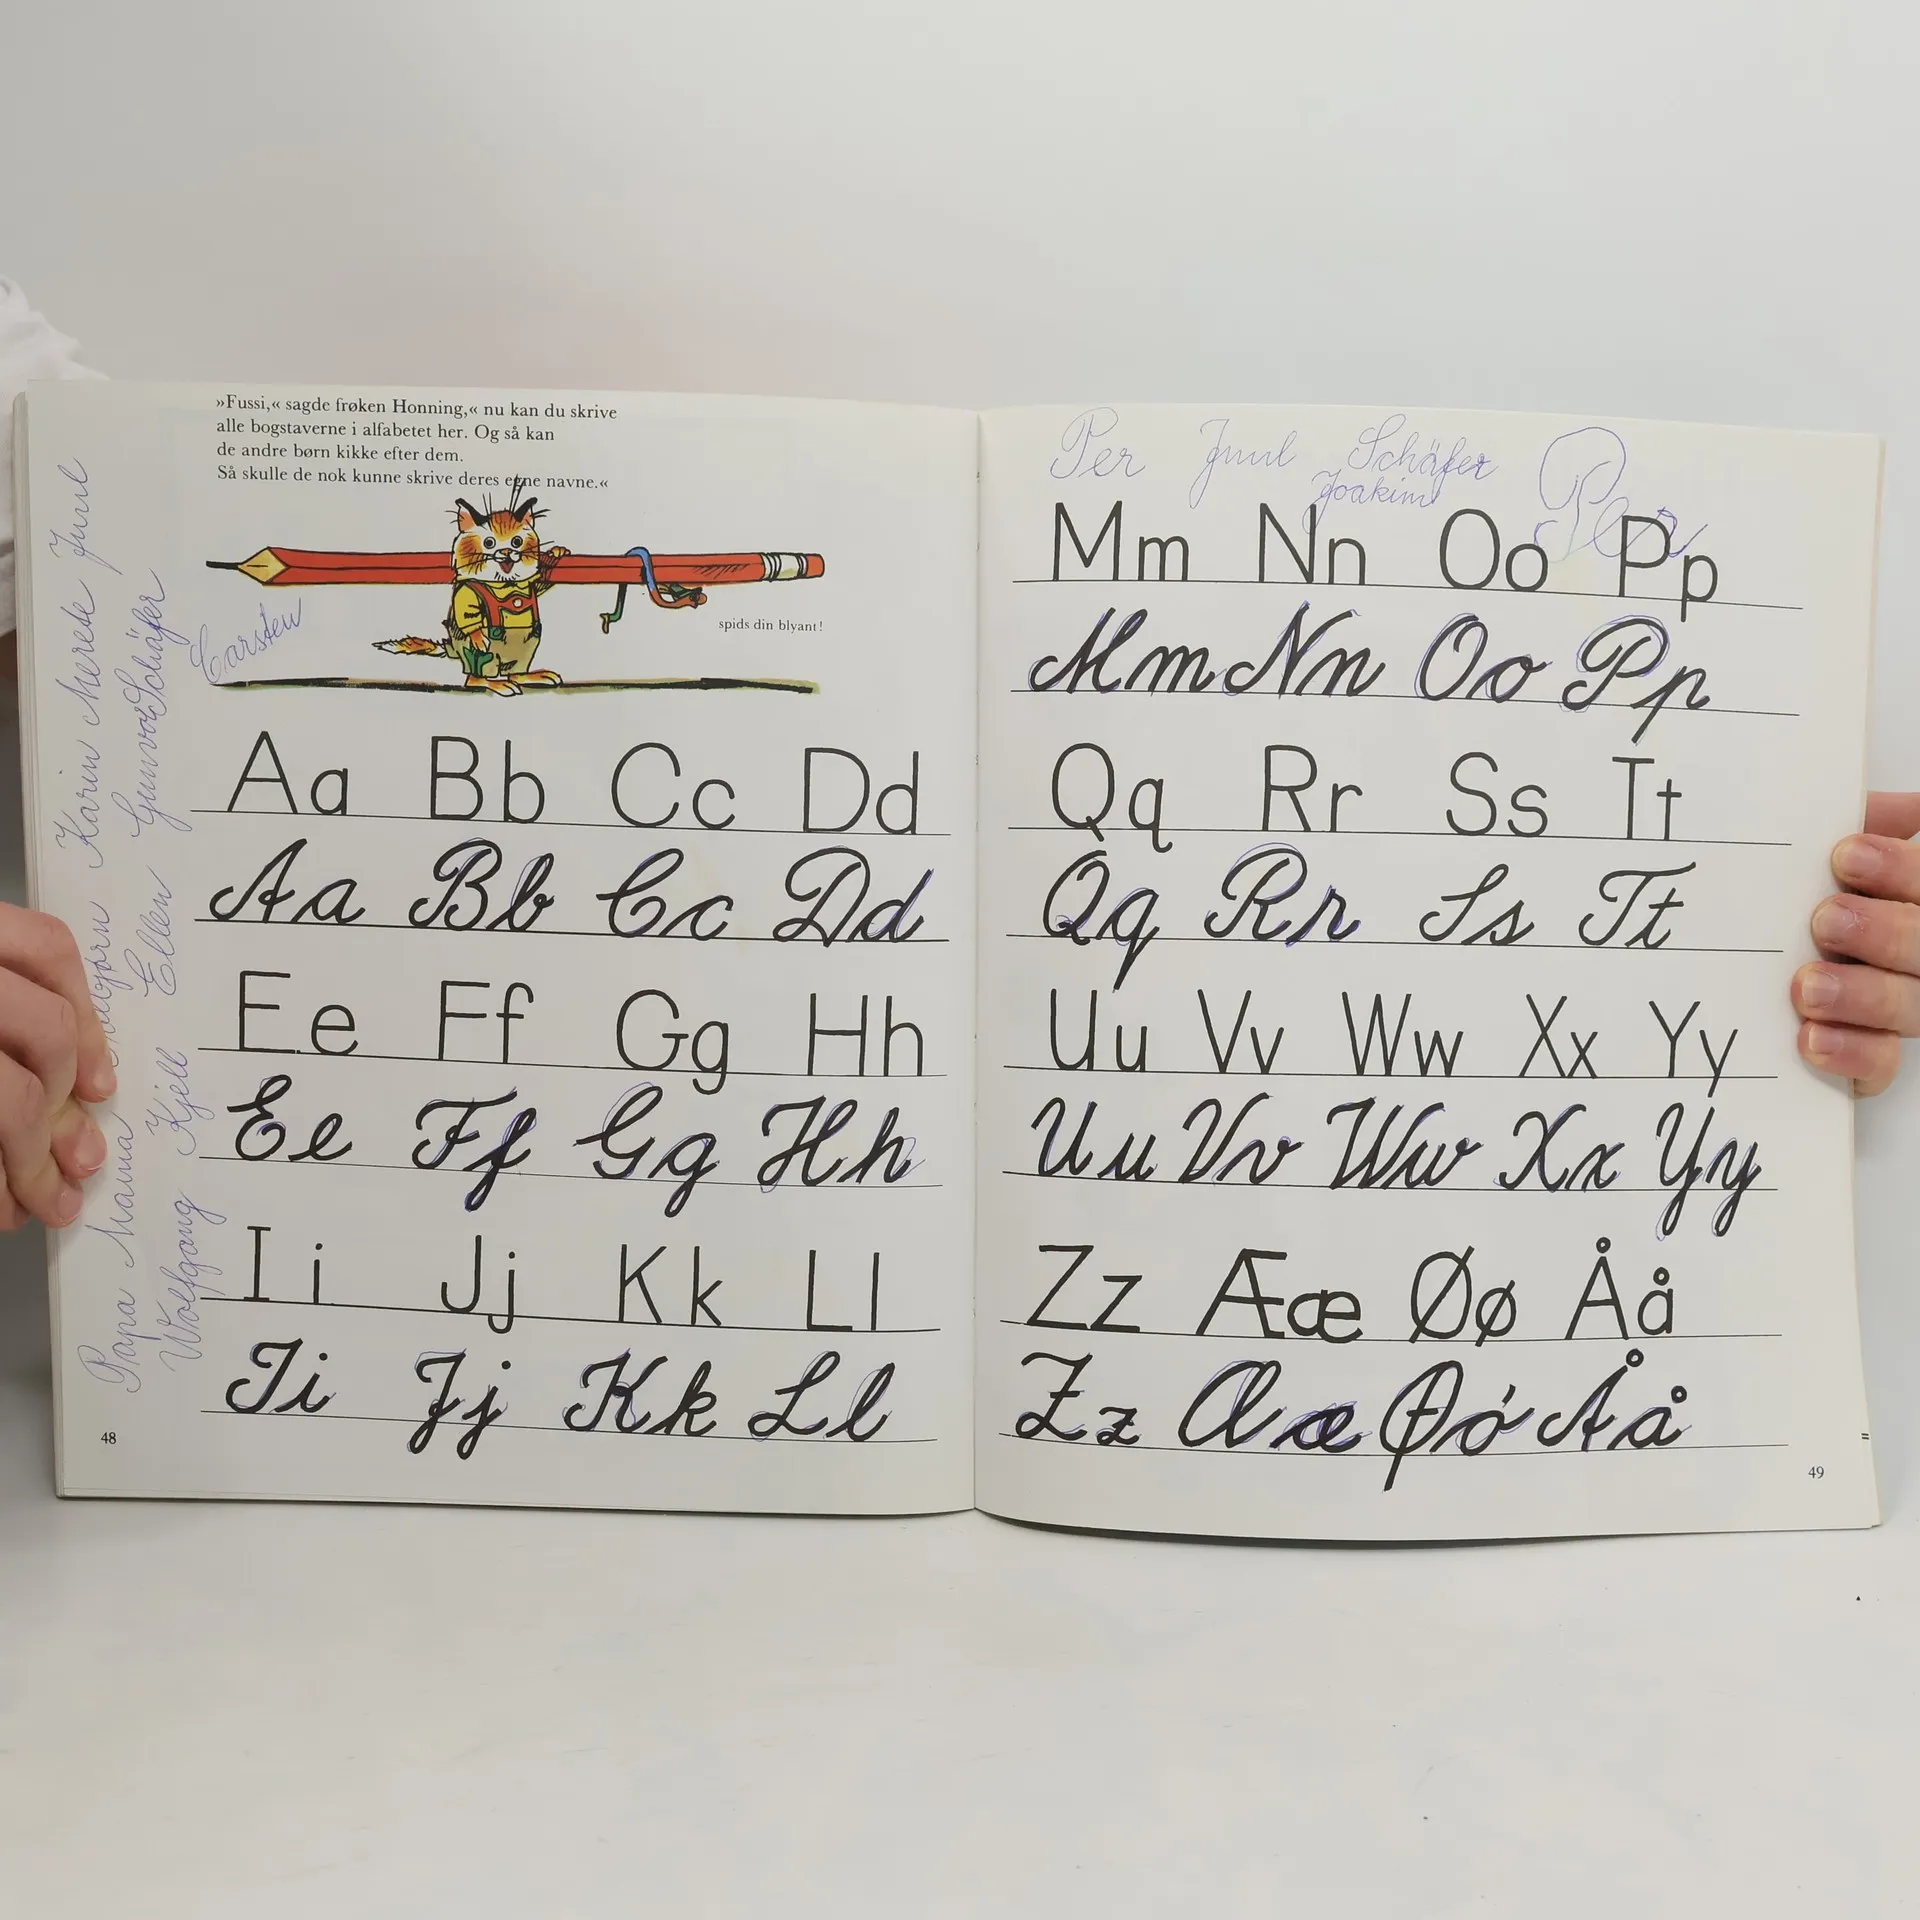 »Fussi,« sagde frøken Honning,« nu kan du skrive
alle bogstaverne i alfabetet her. Og så kan
de andre børn kikke efter dem.
Så skulle de nok kunne skrive deres egne navne.«
spids din blyant!
Carsten
Papa Mama Karin Merete Juul
Wolfgang Kjell Ellen Gunvor Schäfer
Aa Bb Cc Dd
Aa Bb Cc Dd
Ee Ff Gg Hh
Ee Ff Gg Hh
Ii Jj Kk Ll
Ii Jj Kk Ll
48
Per Juul Schäfer
Joakim
Mm Nn Oo Pp
Mm Nn Oo Pp
Qq Rr Ss Tt
Qq Rr Ss Tt
Uu Vv Ww Xx Yy
Uu Vv Ww Xx Yy
Zz Ææ Øø Åå
Zz Ææ Øø Åå
49